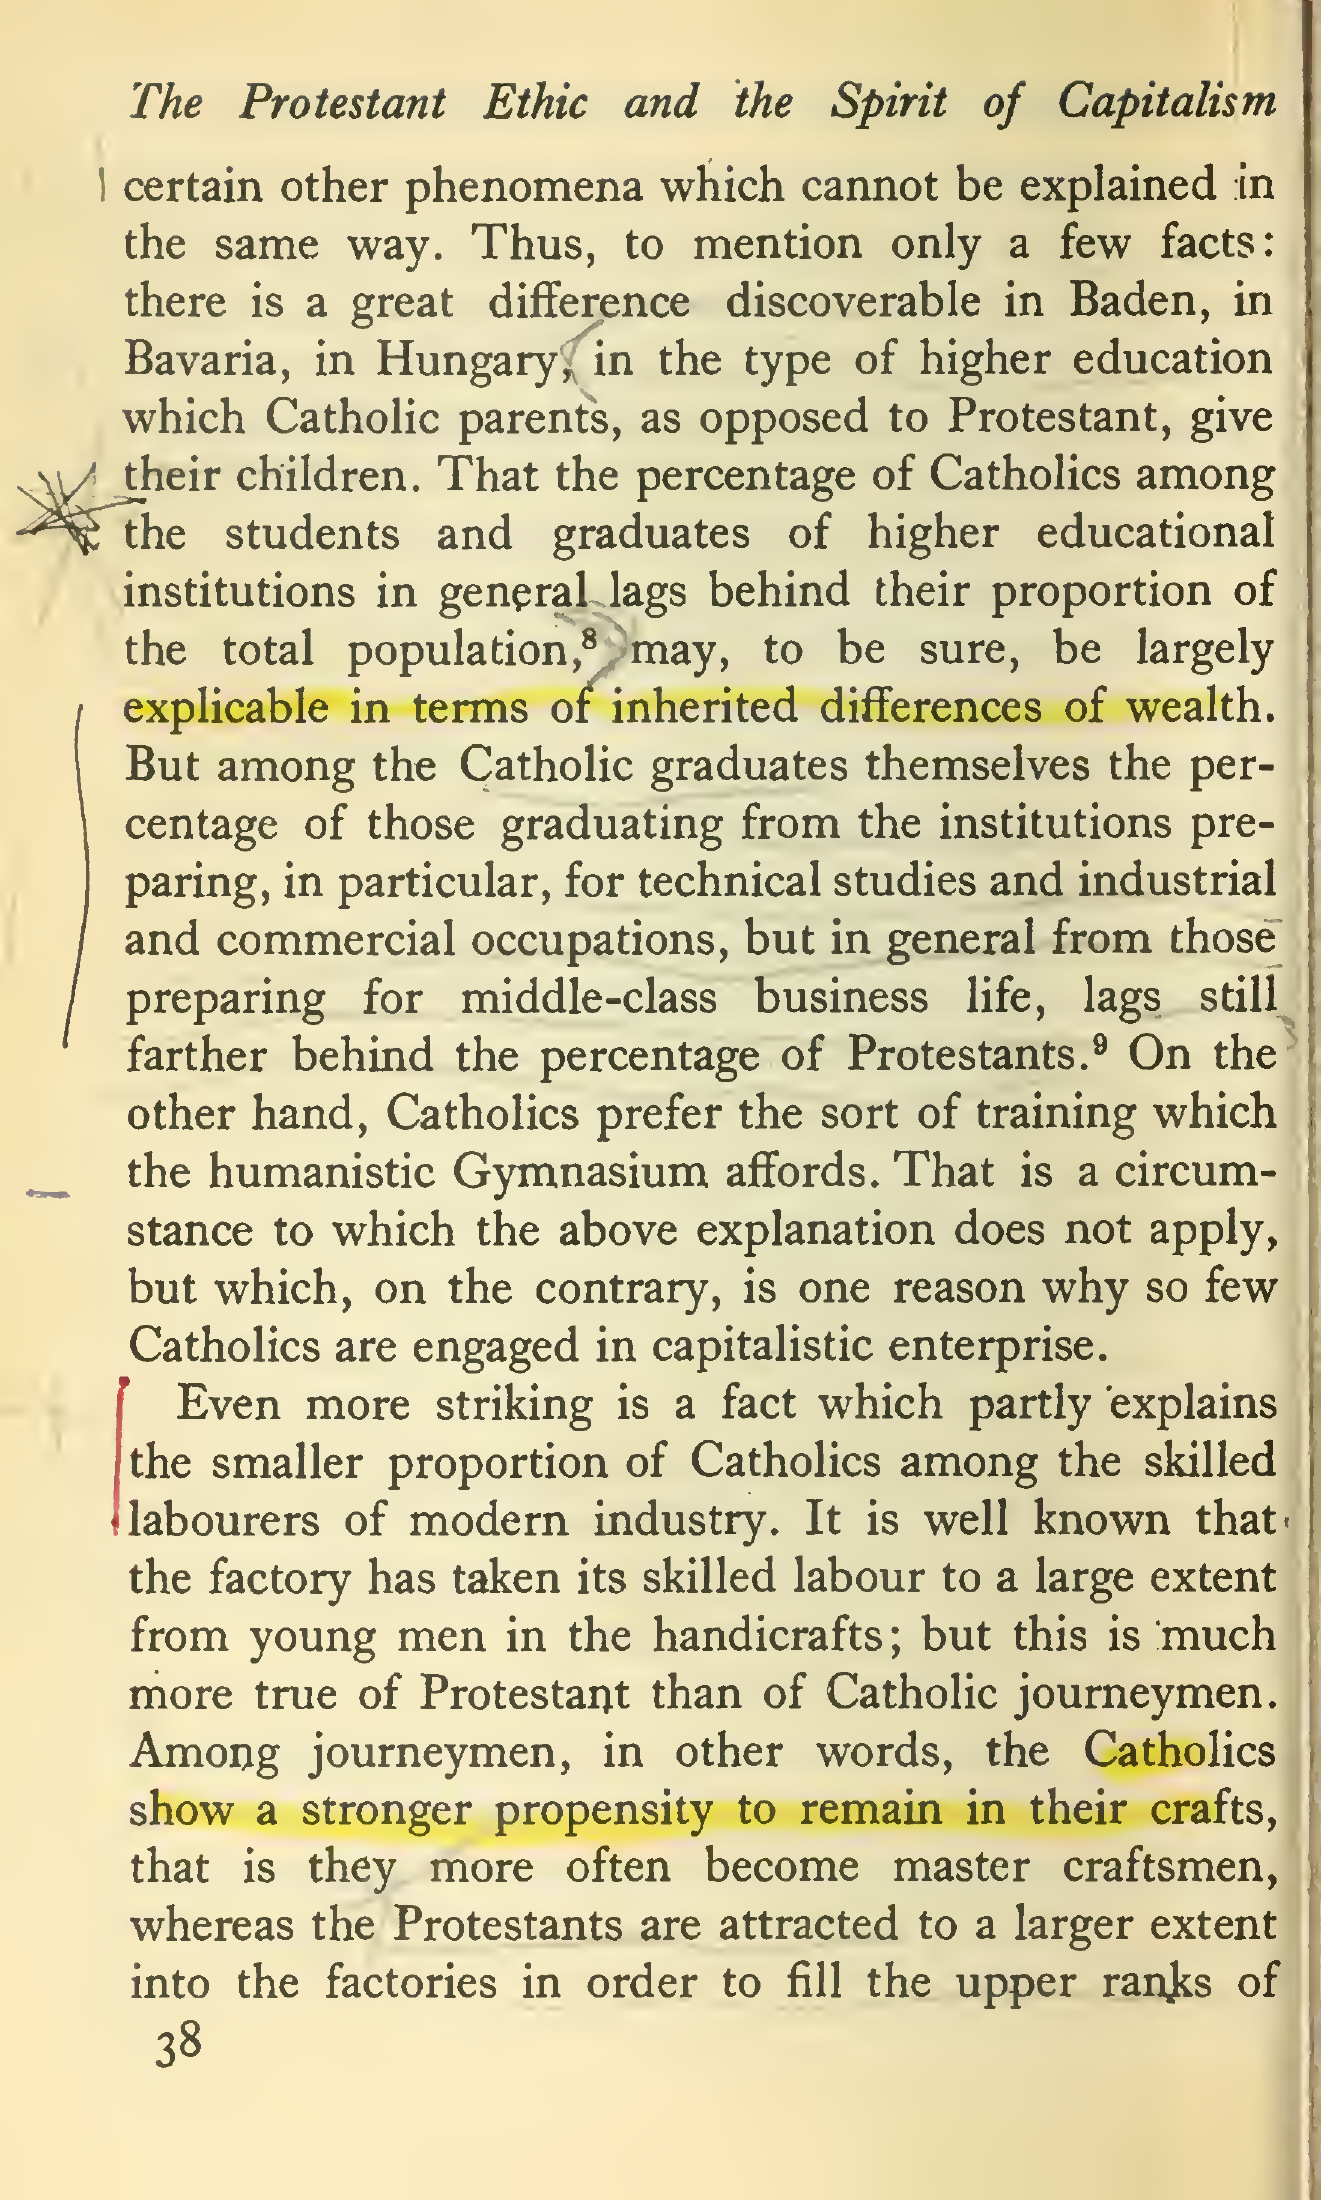 The Protestant Ethic and the Spirit of Capitalism
certain other phenomena which cannot be explained in
the same way. Thus, to mention only a few facts:
there is a great difference discoverable in Baden, in
Bavaria, in Hungary, in the type of higher education
which Catholic parents, as opposed to Protestant, give
their children. That the percentage of Catholics among
the students and graduates of higher educational
institutions in general lags behind their proportion of
the total population,⁸ may, to be sure, be largely
explicable in terms of inherited differences of wealth.
But among the Catholic graduates themselves the per-
centage of those graduating from the institutions pre-
paring, in particular, for technical studies and industrial
and commercial occupations, but in general from those
preparing for middle-class business life, lags still
farther behind the percentage of Protestants.⁹ On the
other hand, Catholics prefer the sort of training which
the humanistic Gymnasium affords. That is a circum-
stance to which the above explanation does not apply,
but which, on the contrary, is one reason why so few
Catholics are engaged in capitalistic enterprise.
Even more striking is a fact which partly explains
the smaller proportion of Catholics among the skilled
labourers of modern industry. It is well known that
the factory has taken its skilled labour to a large extent
from young men in the handicrafts; but this is much
more true of Protestant than of Catholic journeymen.
Among journeymen, in other words, the Catholics
show a stronger propensity to remain in their crafts,
that is they more often become master craftsmen,
whereas the Protestants are attracted to a larger extent
into the factories in order to fill the upper ranks of
38